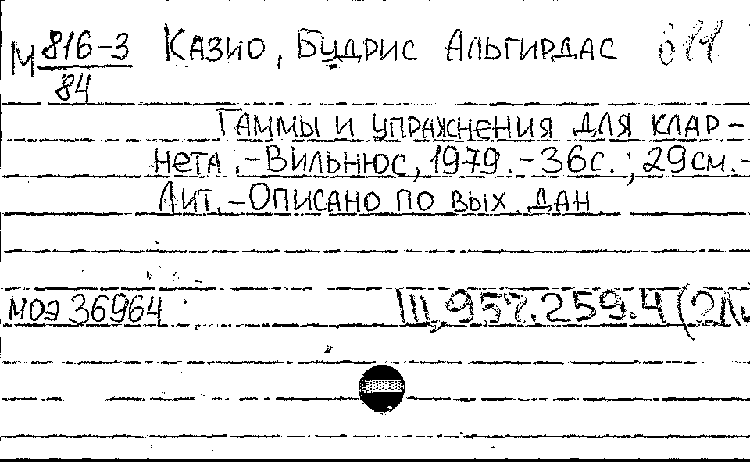 М 816-3 Казио, Будрис Альгирдас
84
Гаммы и упражнения для клар-
нета.-Вильнюс, 1979.-36с.; 29см.-
Лит.-Описано по вых. дан
МОЭ 36964 III, 957.259.4 (2Ли